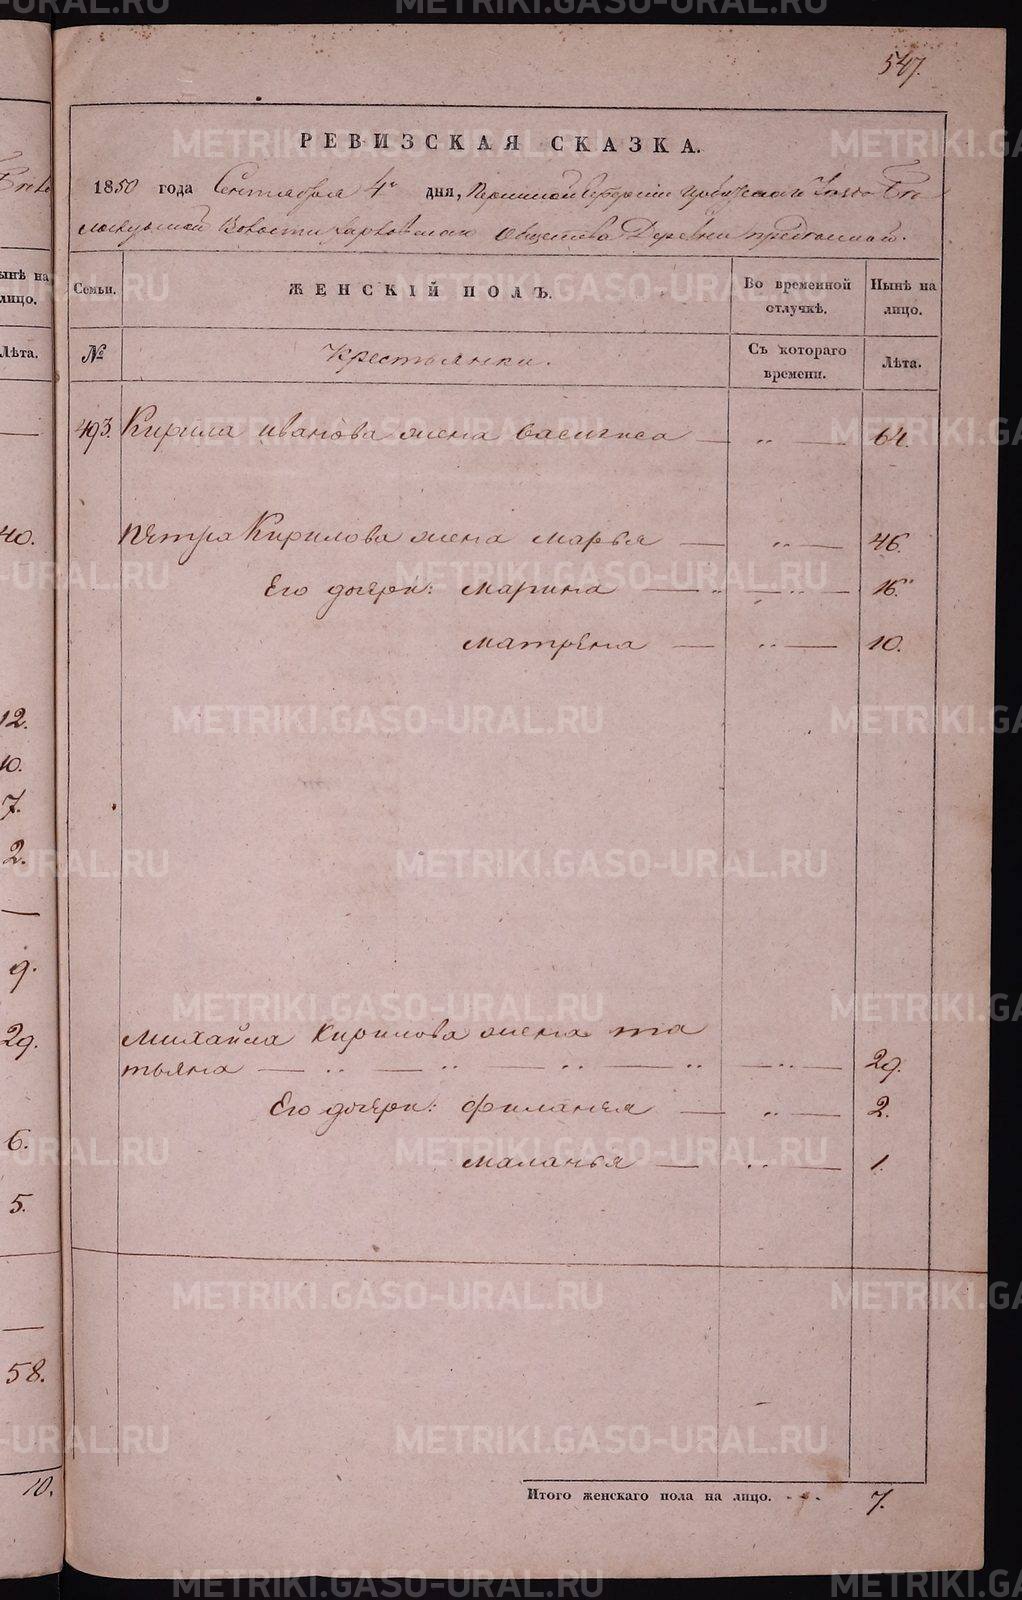 547.
РЕВИЗСКАЯ СКАЗКА.
1850 года Сентября 4го дня, Пермской Губернии Ирбитскаго
Волости Харловскаго Общества Деревни
Семьи. ЖЕНСКІЙ ПОЛЪ. Во временной отлучкѣ. Нынѣ на лицо.
№ Крестьянки. Съ котораго времени. Лѣта.
493. Кирила Иванова жена Василиса — „ — 64.
Петра Кирилова жена Марья — „ — 46.
Его дочери: Марина — „ — „ — 16.
Матрена — „ — 10.
Михайла Кирилова жена Та
тьяна — „ — „ — „ — „ — „ — 29.
Его дочери: Филанья — „ — 2.
Маланья — „ — 1.
Итого женскаго пола на лицо. 7.
ынѣ на
лицо.
Лѣта.
40.
12.
10.
7.
2.
9.
29.
6.
5.
58.
10.
METRIKI.GASO-URAL.RU